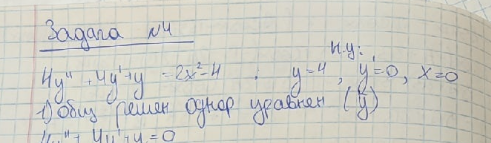 Задача №4
н.у:
4y'' + 4y' + y = 2x² - 4 . y=4, y'=0, x=0
1) Общ решен однор уравнен (ȳ)
4y'' + 4y' + y = 0